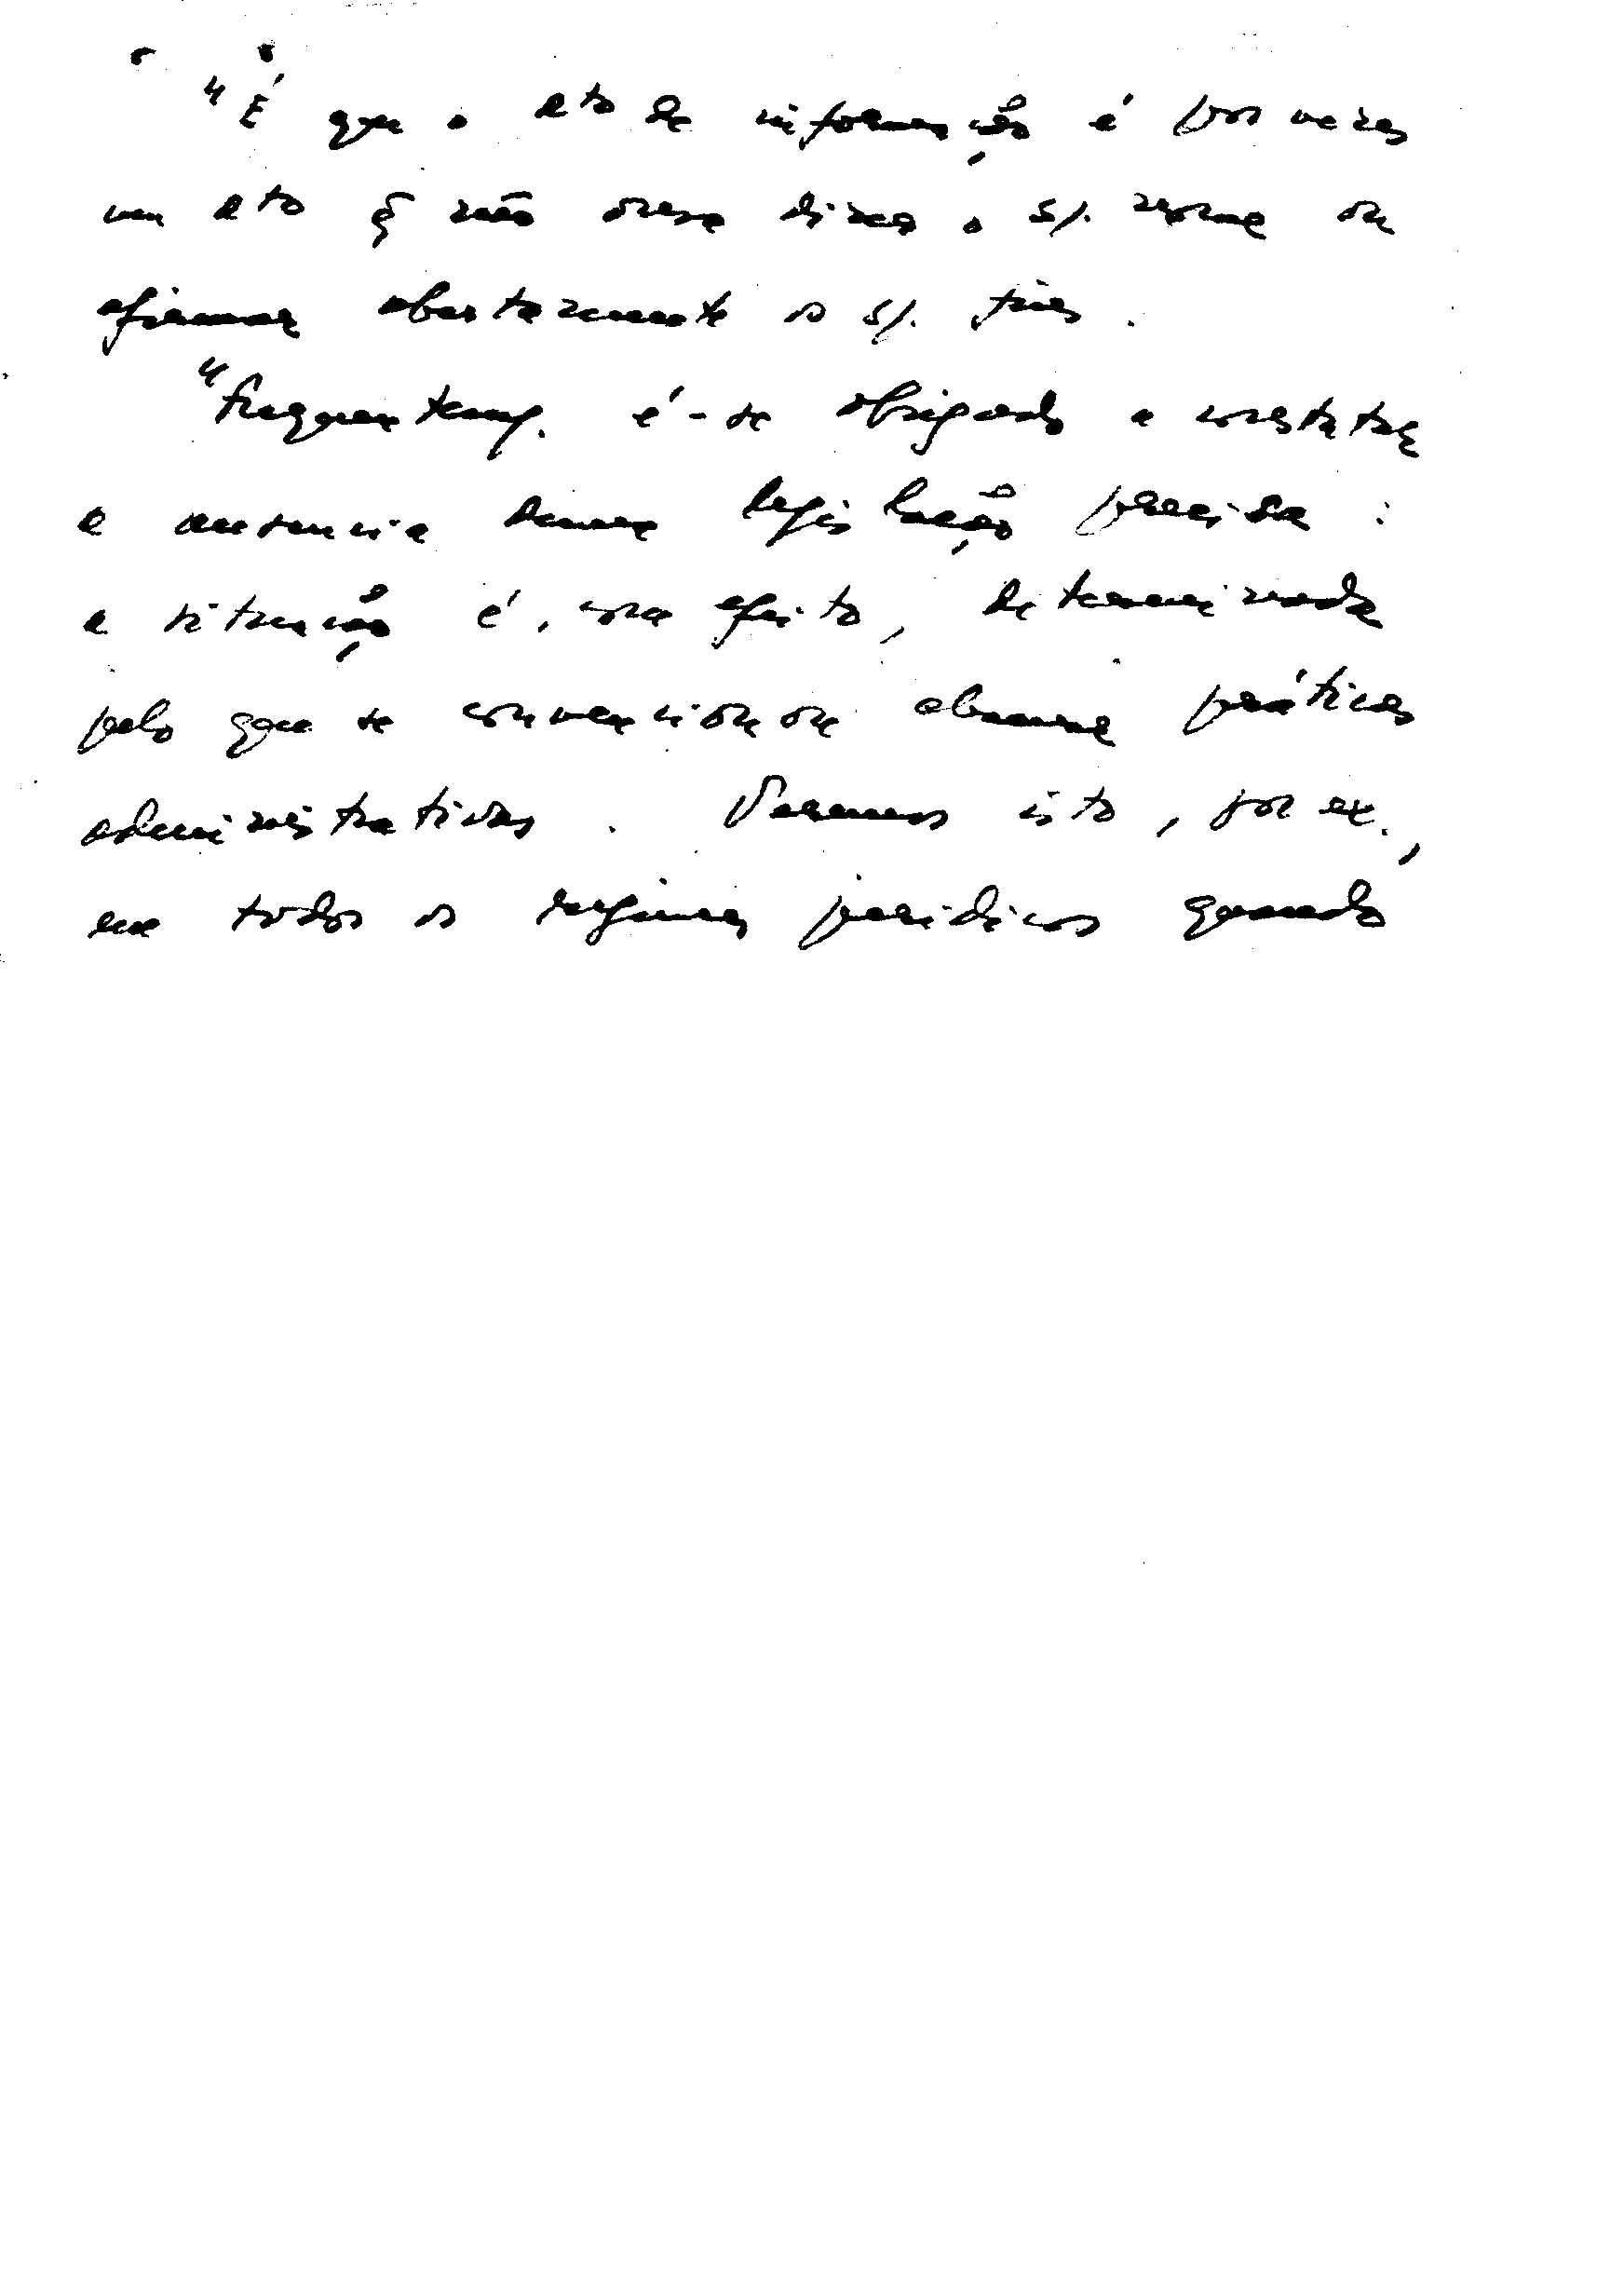 "É que o dto de informação é por vezes
um dto q̃ não ousa dizer o s/. nome ou
afirmar abertamente os s/. fins.
"Frequentem/. é-se obrigado a constatar
a ausencia duma legislação precisa:
a situação é, com efeito, determinada
pelo que se convencionou chamar práticas
administrativas. Vejamos isto, por ex.,
em todos os regimes juridicos quando